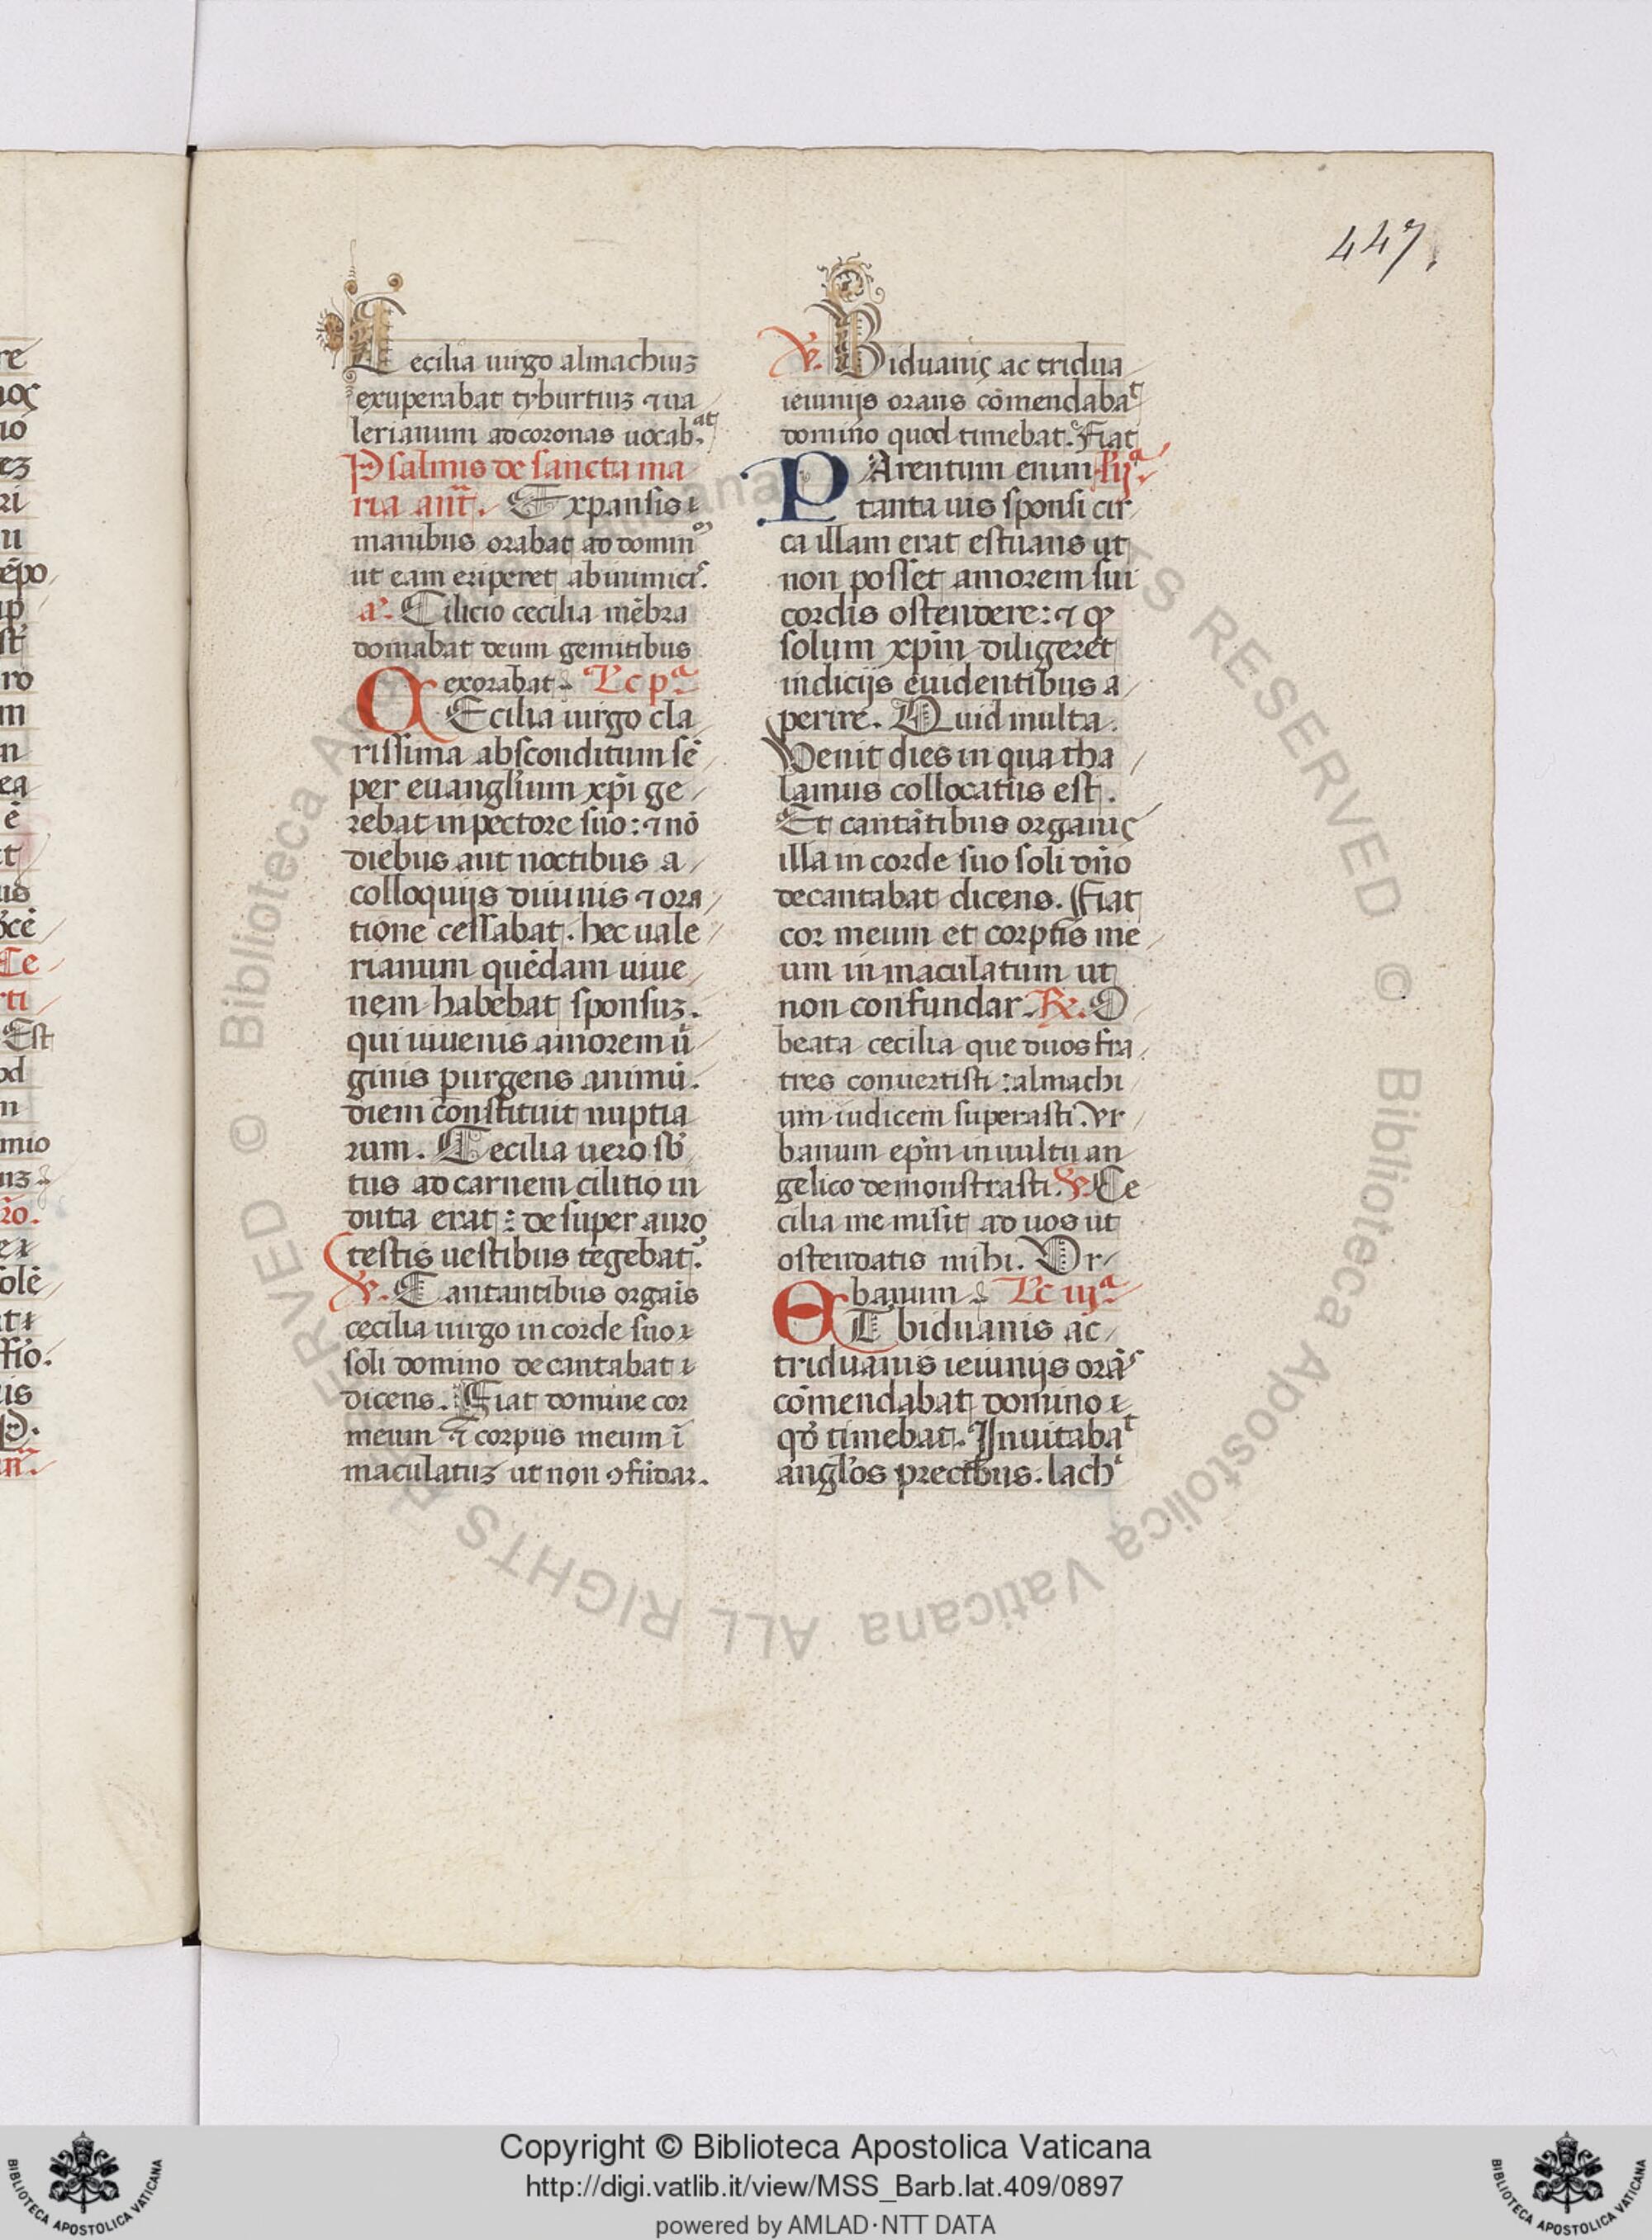 447.
Cecilia uirgo almachiuꝫ
exuperabat tyburtiuꝫ ⁊ ua
lerianum ad coronas uocab.at
Psalmis de sancta ma
ria añt. Expansis
manibus orabat ad domin
ut eam eriperet ab inimicis.
a. Cilicio cecilia mēbra
domabat deum gemitibus
exorabat. Lc pa
CEcilia uirgo cla
rissima absconditum sē
per euanglium xp̄i ge
rebat in pectore suo: ⁊ nō
diebus aut noctibus a
colloquijs diuinis ⁊ ora
tione cessabat. hec uale
rianum quēdam iuue
nem habebat sponsuꝫ.
qui iuuenis amorem ū
ginis purgens animū.
diem constituit nuptia
rum. Cecilia uero sb
tus ad carnem cilitio in
duta erat: de super auro
testis uestibus tegebat.
℣. Cantantibus orgais
cecilia uirgo in corde suo
soli domino decantabat
dicens. Fiat domine cor
meum ⁊ corpus meum ī
maculatuꝫ ut non ꝯfūdar.
℣. Biduanis ac tridua
ieiunijs orans cōmendabat
domino quod timebat. Fiat
PArentum enim lc ija
tanta uis sponsi cir
ca illam erat estuans ut
non posset amorem sui
cordis ostendere: ⁊ ꝙ
solum xp̄m diligeret
indicijs euidentibus a
perire. Quid multa.
Venit dies in qua tha
lamus collocatus est.
Et cantātibus organis
illa in corde suo soli dn̄o
decantabat dicens. Fiat
cor meum et corpus me
um inmaculatum ut
non confundar. ℟. O
beata cecilia que duos fra
tres conuertisti: almachi
um iudicem superasti. Vr
banum ep̄m in uultu an
gelico demonstrasti. ℣. Ce
cilia me misit ad uos ut
ostendatis mihi. Vr
banum. Lc iija
ET biduanis ac
triduanis ieiunijs orās
cōmendabat domino
qđ timebat. Inuitabat
anglos precibus. lach
Copyright © Biblioteca Apostolica Vaticana
http://digi.vatlib.it/view/MSS_Barb.lat.409/0897
powered by AMLAD·NTT DATA
BIBLIOTECA APOSTOLICA VATICANA
BIBLIOTECA APOSTOLICA VATICANA